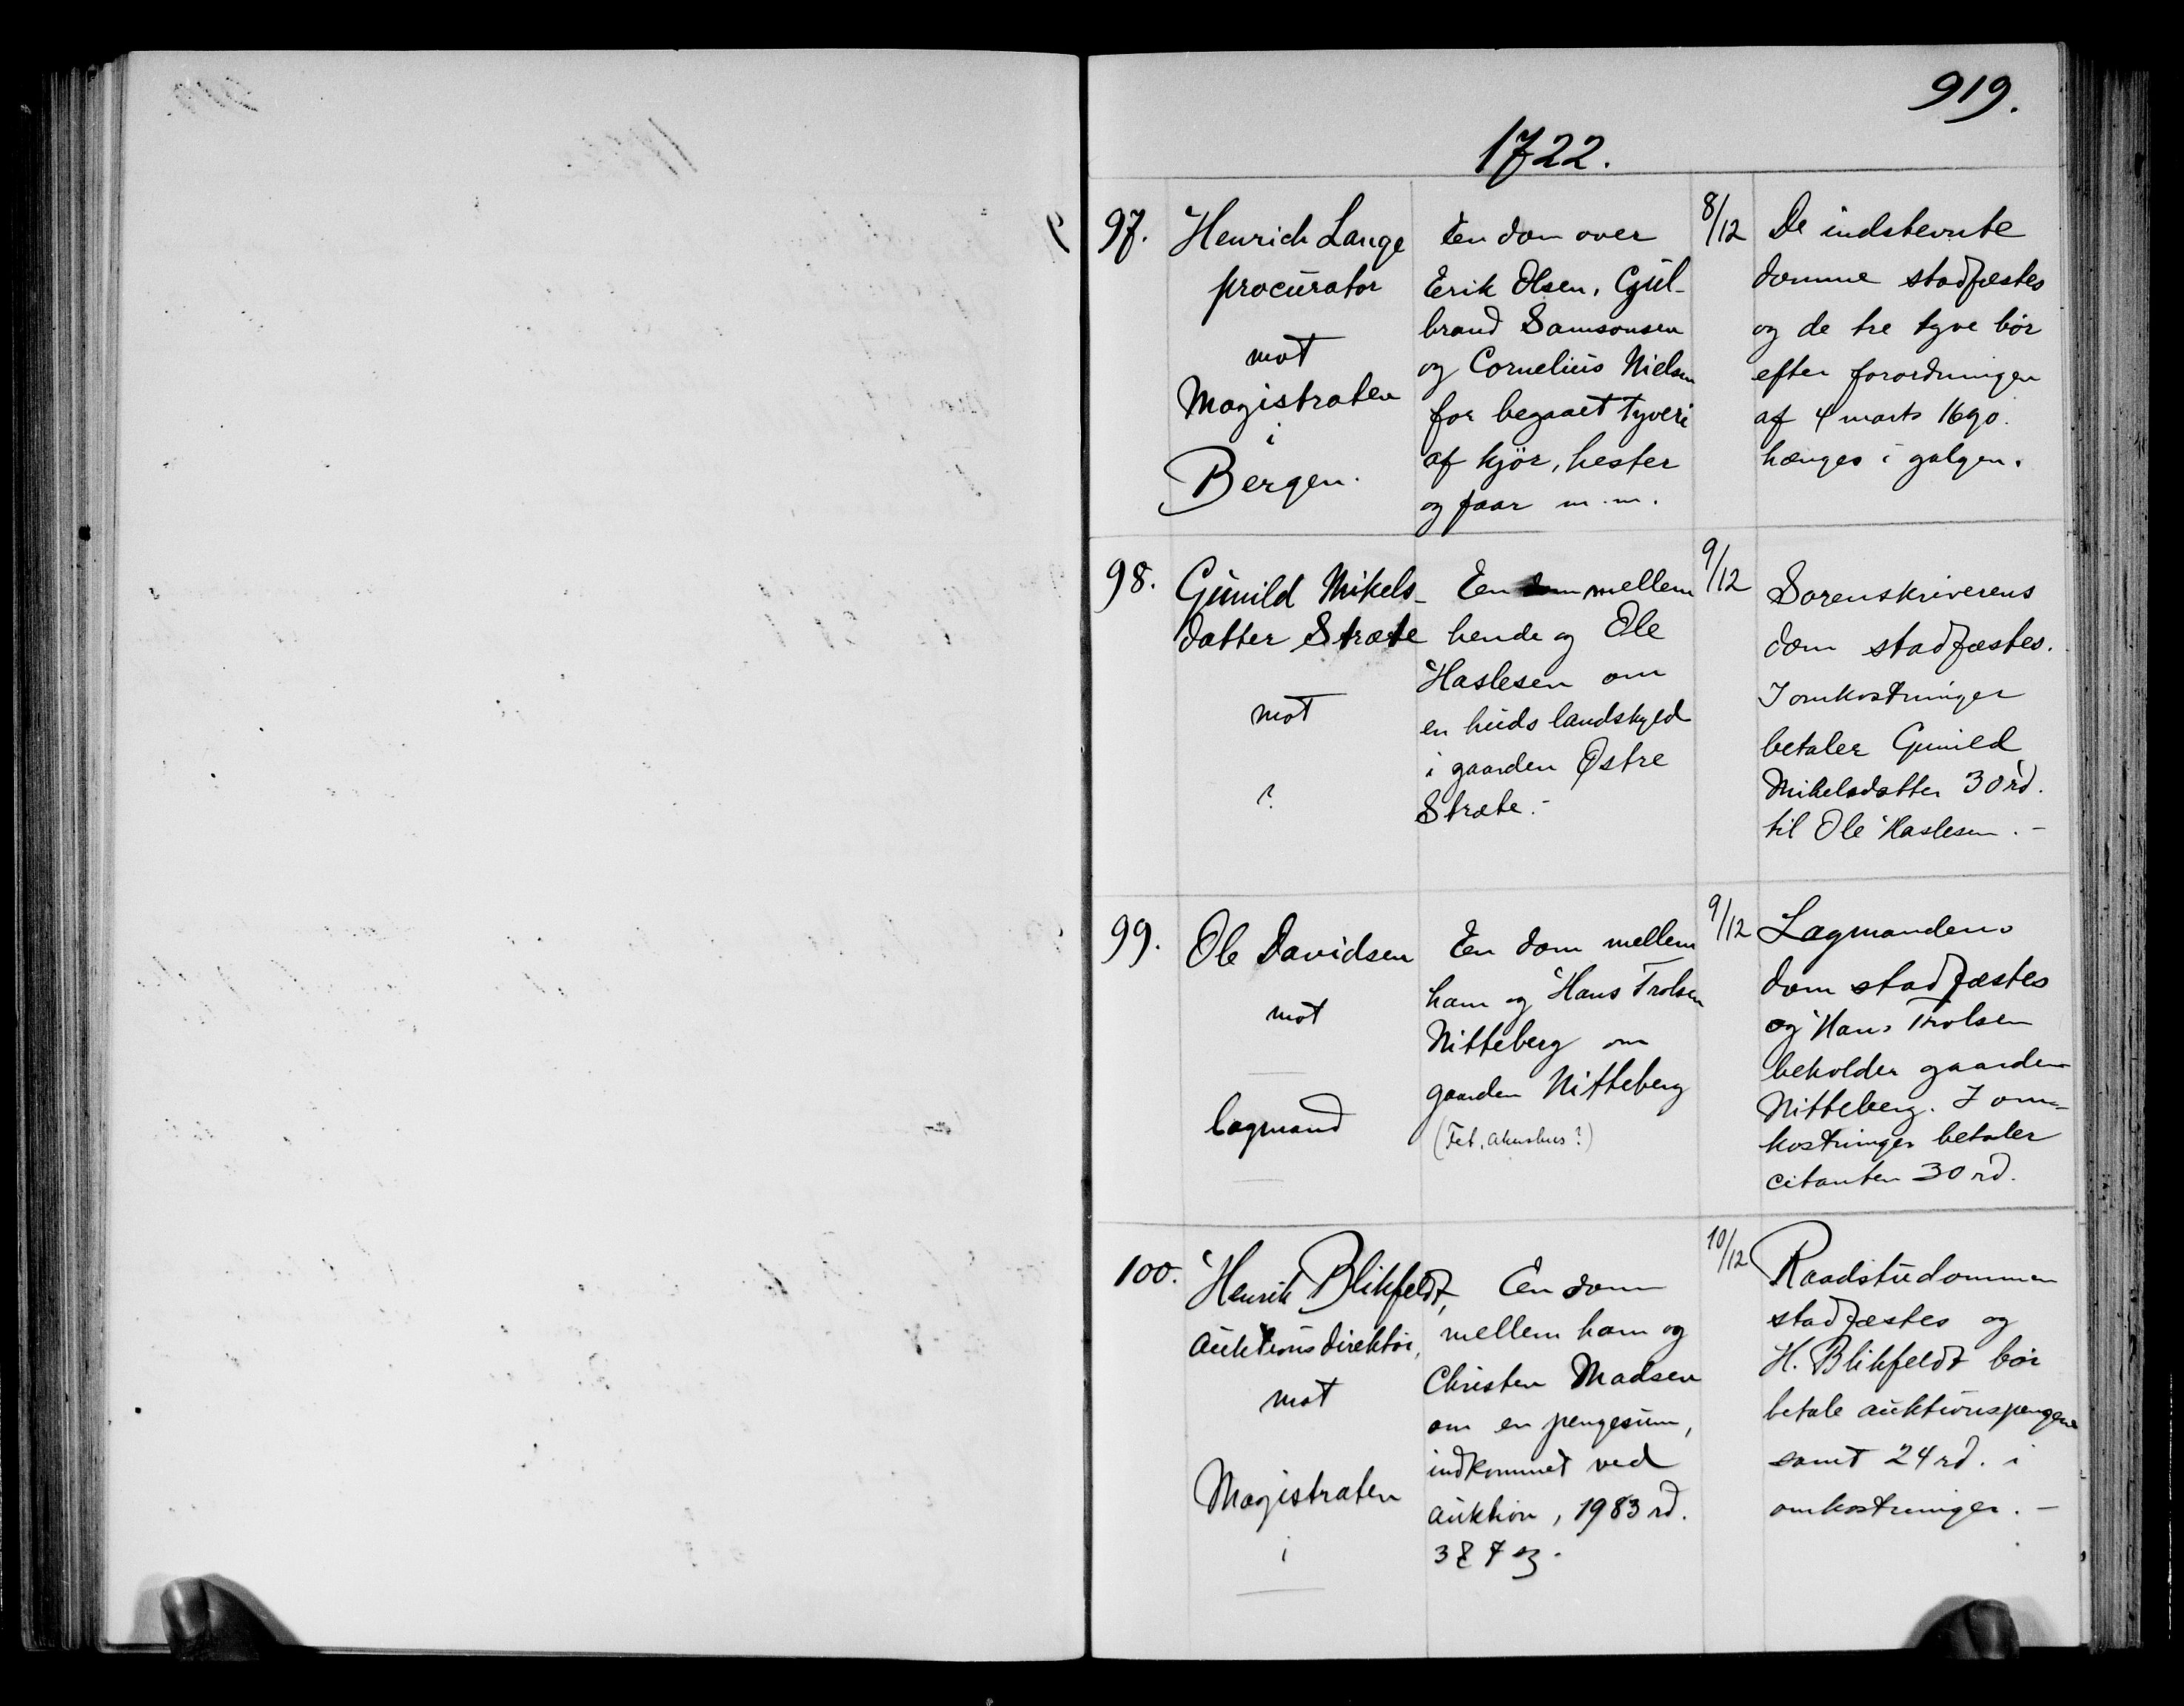 919.
1722.
97.
Henrich Lange
procurator
mot
Magistraten
i
Bergen.
En dom over
Erik Olsen, Gul-
brand Samsonsen
og Cornelius Nielsen
for begaaet tyveri
af kjör, hester
og faar m.m.
8/12
De indstevnte
domme stadfæstes
og de tre tyve bör
efter forordningen
af 4 marts 1690.
hænges i galgen.
98.
Gunild Mikels-
datter Stræte
mot
?
En dom mellem
hende og Ole
Haslesen om
en huds landskyld
i gaarden Østre
Stræte.-
9/12
Sorenskriverens
dom stadfæstes.
I omkostninger
betaler Gunild
Mikelsdatter 30 rd.
til Ole Haslesen.-
99.
Ole Davidsen
mot
lagmand
En dom mellem
ham og Hans Trolsen
Nitteberg om
gaarden Nitteberg
(Fet, Akershus?)
9/12
Lagmandens
dom stadfæstes
og Hans Trolsen
beholder gaarden
Nitteberg. I om-
kostninger betaler
citanten 30 rd.
100.
Henrik Blikfeldt,
auktionsdirektör,
mot
Magistraten
i
En dom
mellem ham og
Christen Madsen
om en pengesum,
indkommet ved
auktion, 1983 rd.
3 7
10/12
Raadstuedommen
stadfæstes og
H. Blikfeldt bör
betale auktionspengene
samt 24 rd. i
omkostninger.-